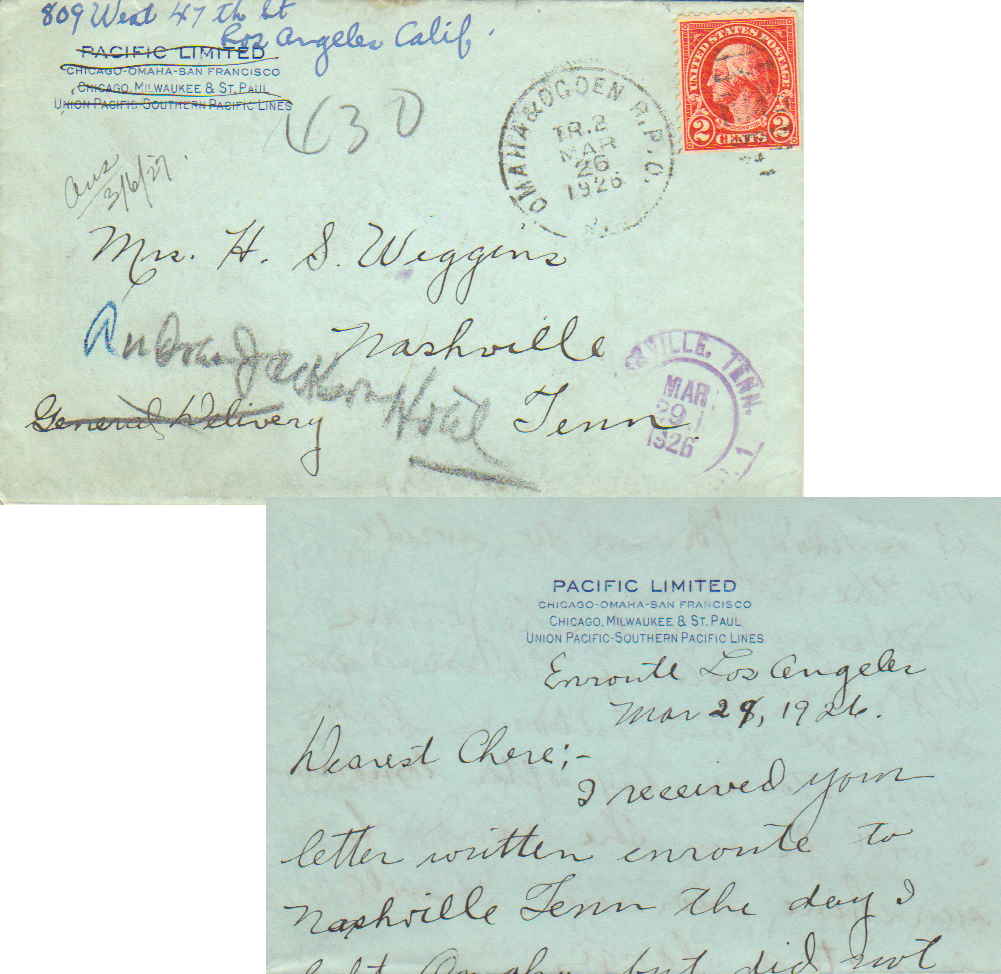 809 West 47th St
Los Angeles Calif.
PACIFIC LIMITED
CHICAGO-OMAHA-SAN FRANCISCO
CHICAGO, MILWAUKEE & ST. PAUL
UNION PACIFIC-SOUTHERN PACIFIC LINES
630
OMAHA & OGDEN R.P.O.
TR.2
MAR
26
1926
UNITED STATES POSTAGE
2 CENTS 2
Ans
3/6/27
Mrs. H. S. Wiggins
Nashville
Andrew Jackson Hotel
General Delivery
Tenn
VILLE, TENN.
MAR
29
1926
1
PACIFIC LIMITED
CHICAGO-OMAHA-SAN FRANCISCO
CHICAGO, MILWAUKEE & ST. PAUL
UNION PACIFIC-SOUTHERN PACIFIC LINES
Enroute Los Angeles
Mar 28, 1926.
Dearest Chere;-
I received your
letter written enroute to
Nashville Tenn the day I
left Omaha but did not